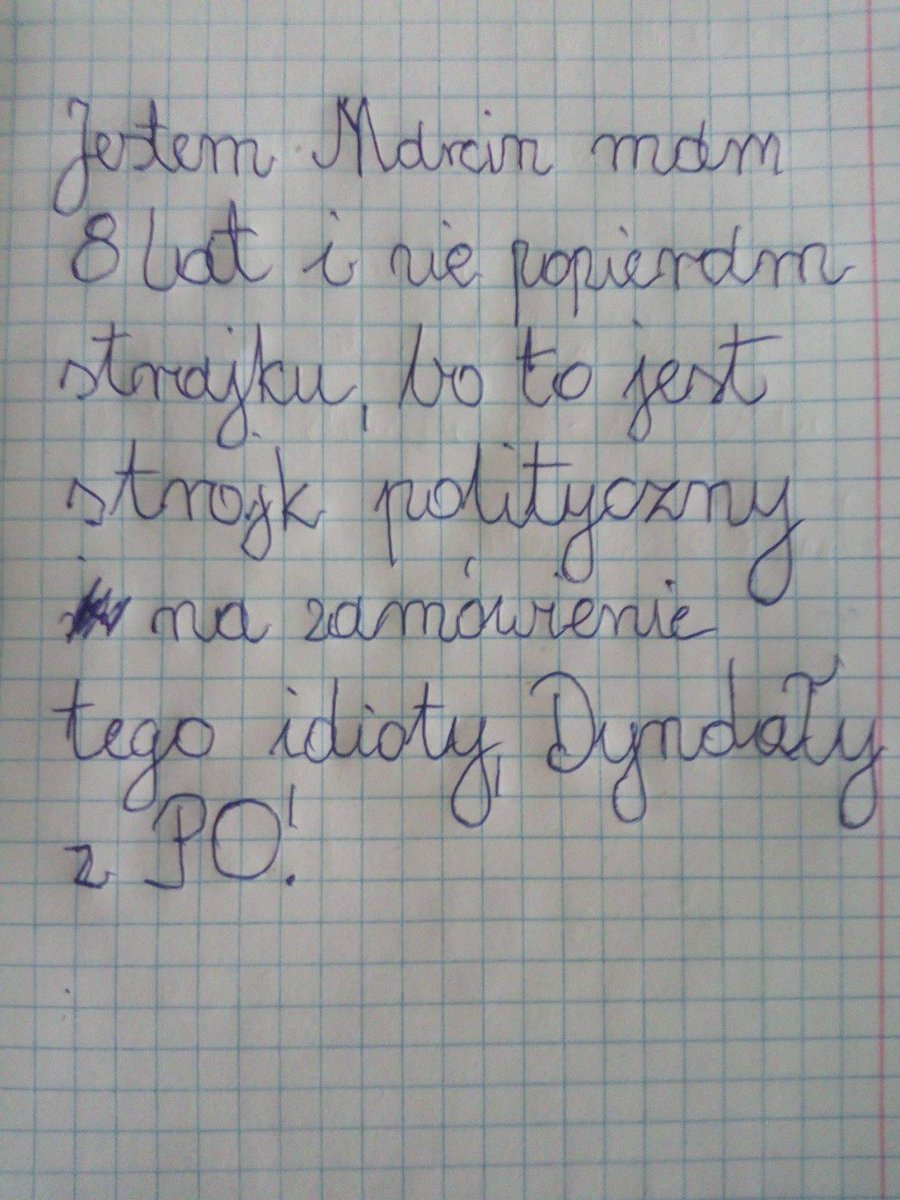 Jestem Marcin mam
8 lat i nie popieram
strajku, bo to jest
strajk polityczny
na zamówienie
tego idioty, Dyndały
z PO!